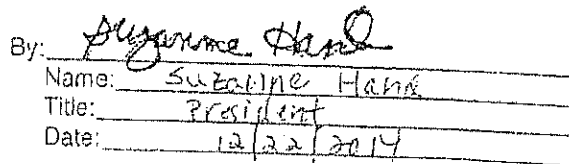 By: Suzanne Hand
Name: Suzanne Hand
Title: President
Date: 12/22/2014